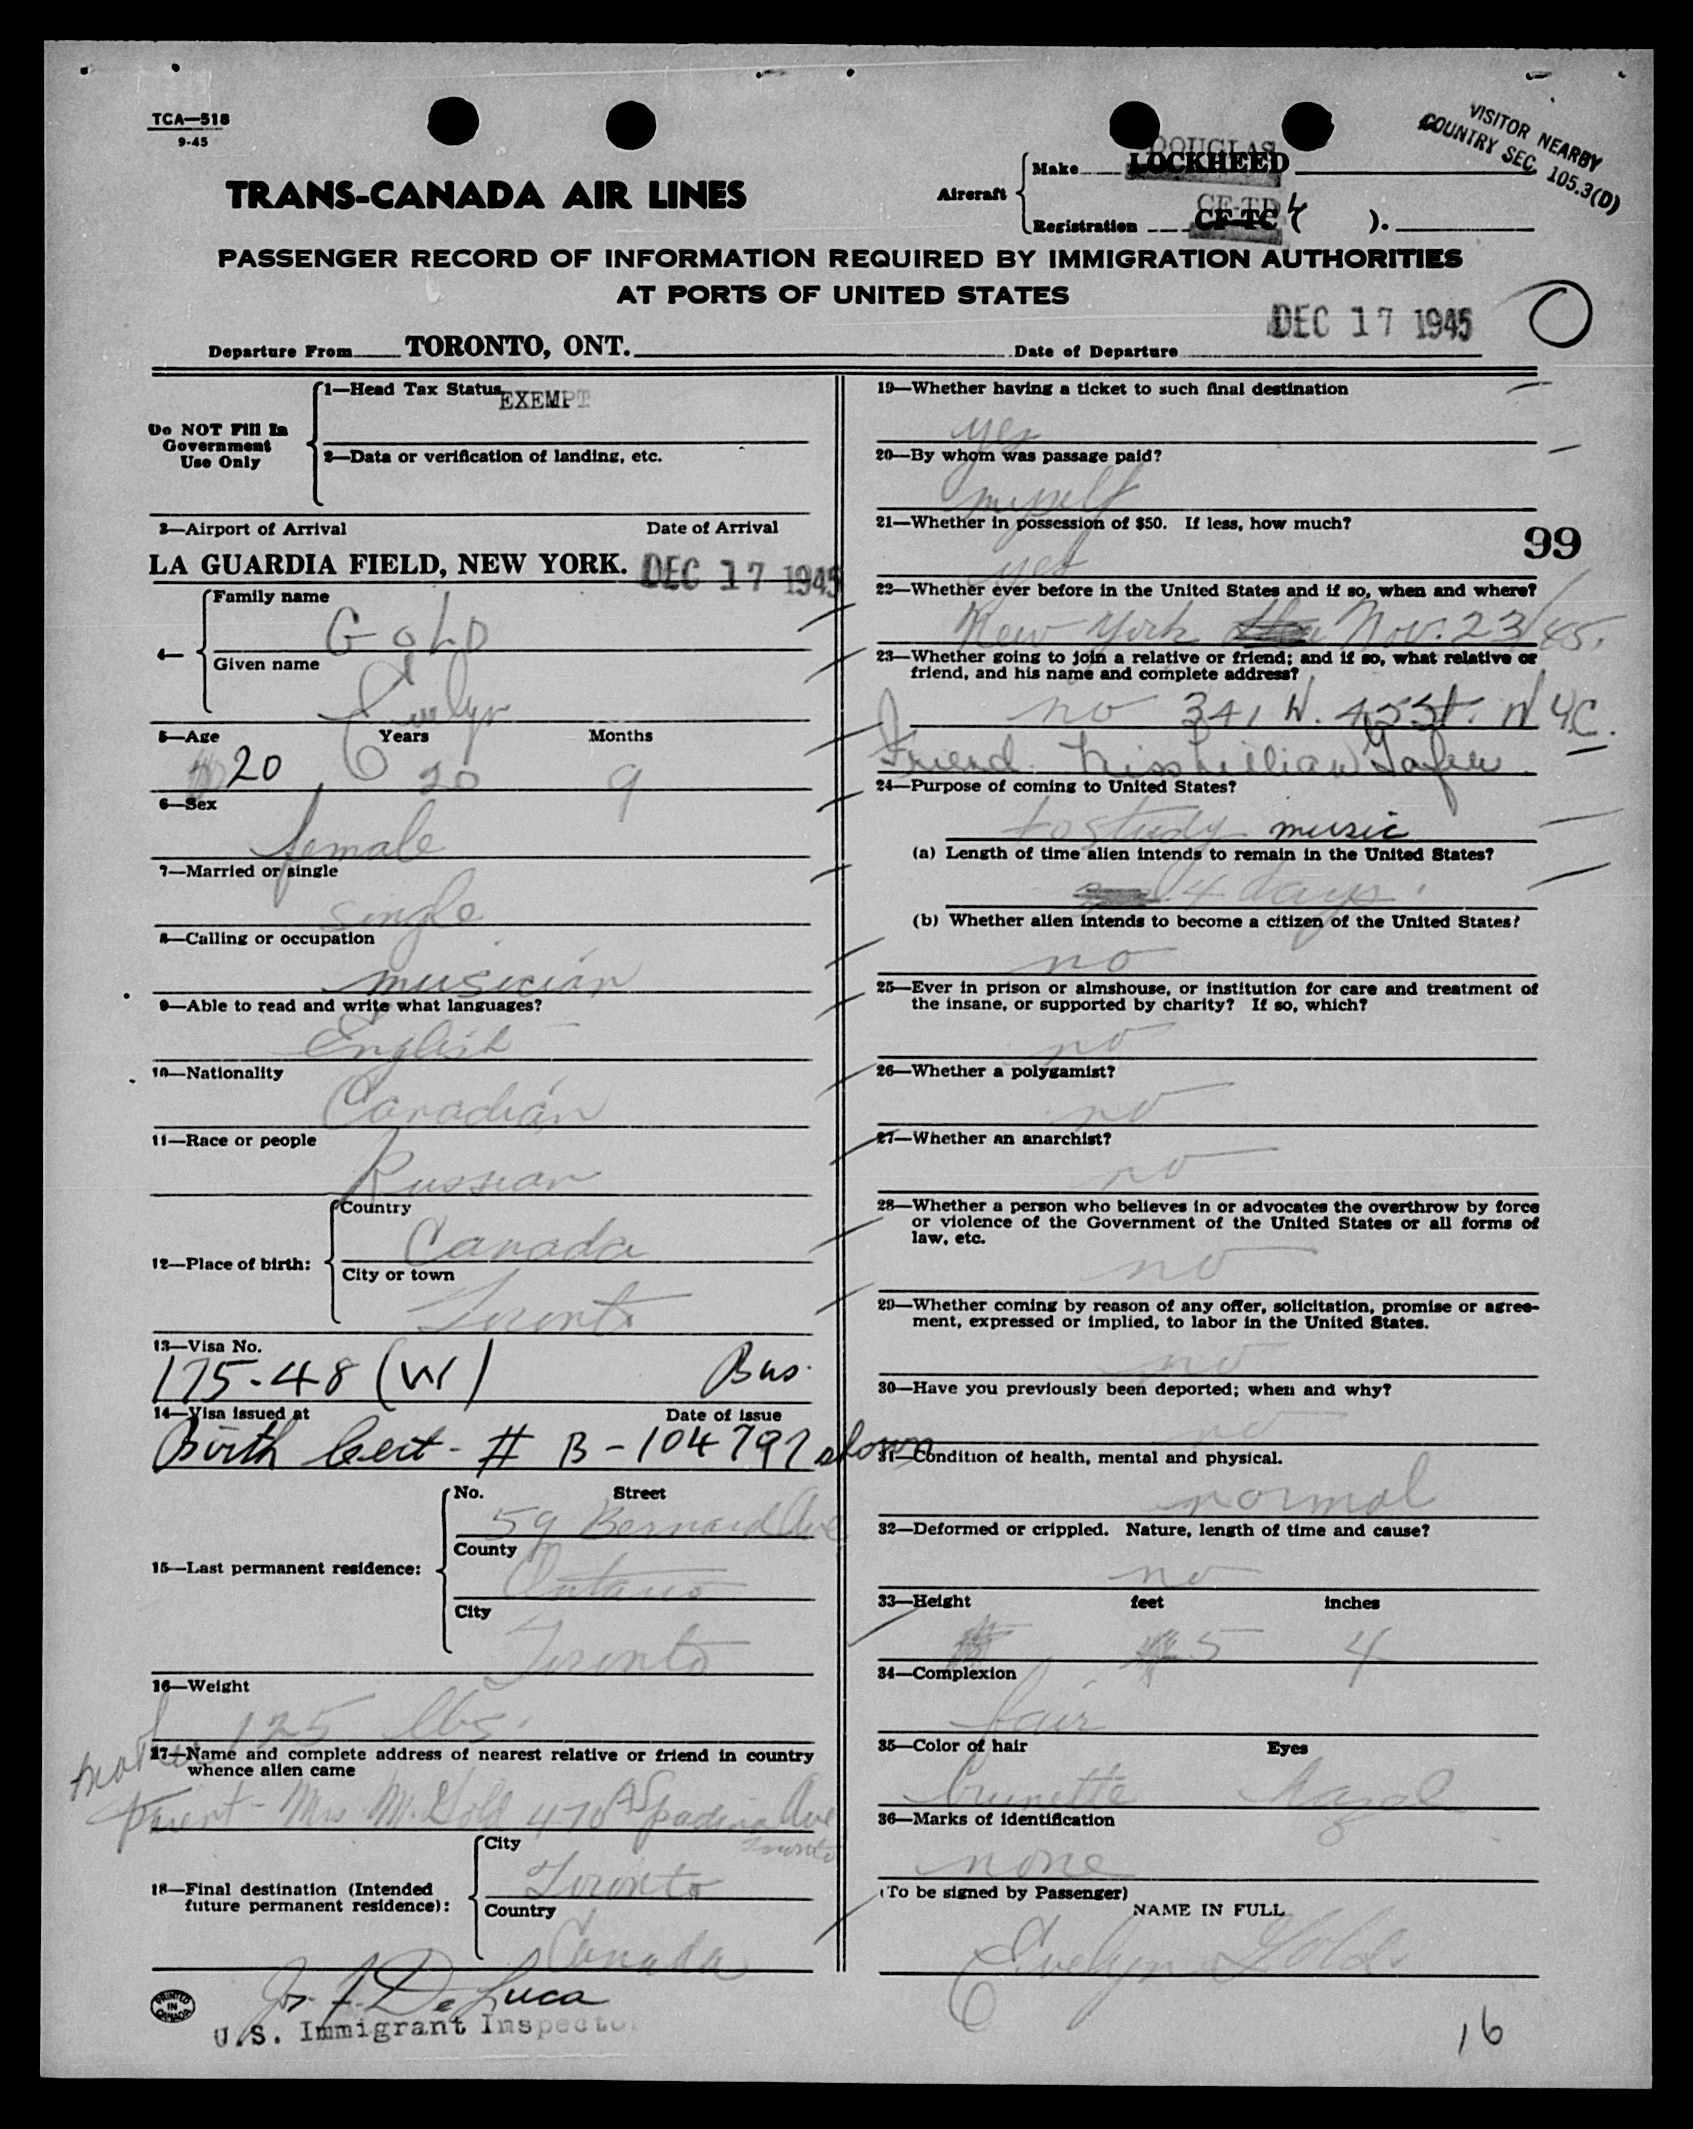 TCA—518
9-45
VISITOR NEARBY
COUNTRY SEC. 105.3(D)
TRANS-CANADA AIR LINES
Aircraft
Make DOUGLAS
LOCKHEED
Registration CF-TD
CF-TC ( ).
PASSENGER RECORD OF INFORMATION REQUIRED BY IMMIGRATION AUTHORITIES
AT PORTS OF UNITED STATES
Departure From TORONTO, ONT. Date of Departure DEC 17 1945
Do NOT Fill In
Government
Use Only
1—Head Tax Status EXEMPT
2—Data or verification of landing, etc.
3—Airport of Arrival Date of Arrival
LA GUARDIA FIELD, NEW YORK. DEC 17 1945
4—
Family name
Gold
Given name
Evelyn
5—Age Years Months
20 20 9
6—Sex
female
7—Married or single
single
8—Calling or occupation
musician
9—Able to read and write what languages?
English
10—Nationality
Canadian
11—Race or people
Russian
12—Place of birth:
Country
Canada
City or town
Toronto
13—Visa No.
175-48 (W) Bus.
14—Visa issued at Date of issue
Birth Cert - # B-104797 shown
15—Last permanent residence:
No. Street
59 Bernard Ave
County
Ontario
City
Toronto
16—Weight
125 lbs.
17—Name and complete address of nearest relative or friend in country
whence alien came
mother
parent - Mrs. M. Gold 470 A Spadina Ave
Toronto
18—Final destination (Intended
future permanent residence):
City
Toronto
Country
Canada
Jos. F. De Luca
U.S. Immigrant Inspector
PRINTED
IN
CANADA
19—Whether having a ticket to such final destination
yes
20—By whom was passage paid?
myself
21—Whether in possession of $50. If less, how much?
yes
99
22—Whether ever before in the United States and if so, when and where?
New York Nov. 23/45.
23—Whether going to join a relative or friend; and if so, what relative or
friend, and his name and complete address?
no 341 W. 45 St. NYC.
Friend. Miss Lillian
24—Purpose of coming to United States?
to study music
(a) Length of time alien intends to remain in the United States?
4 days.
(b) Whether alien intends to become a citizen of the United States?
no
25—Ever in prison or almshouse, or institution for care and treatment of
the insane, or supported by charity? If so, which?
no
26—Whether a polygamist?
no
27—Whether an anarchist?
no
28—Whether a person who believes in or advocates the overthrow by force
or violence of the Government of the United States or all forms of
law, etc.
no
29—Whether coming by reason of any offer, solicitation, promise or agree-
ment, expressed or implied, to labor in the United States.
no
30—Have you previously been deported; when and why?
no
31—Condition of health, mental and physical.
normal
32—Deformed or crippled. Nature, length of time and cause?
no
33—Height feet inches
5 4
34—Complexion
fair
35—Color of hair Eyes
brunette hazel
36—Marks of identification
none
(To be signed by Passenger)
NAME IN FULL
Evelyn Gold.
16